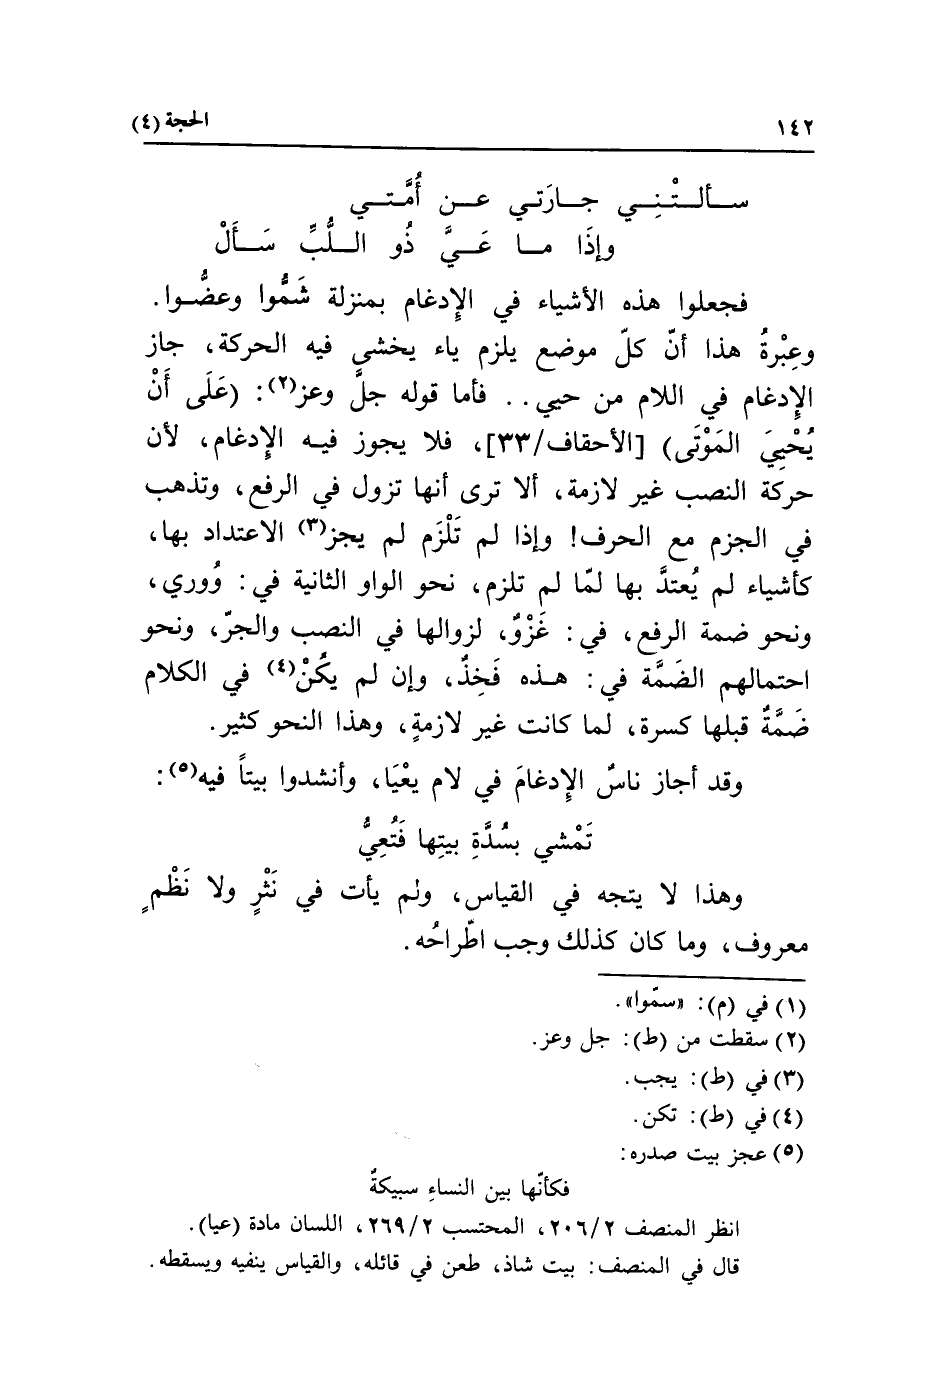 ١٤٢ الحجة (٤)
ســألــتْـنِــي جــارَتي عــن أُمَّــتــي
وإذَا مــا عَــيَّ ذُو الــلُّبِّ سَــأَلْ
فجعلوا هذه الأشياء في الإدغام بمنزلة شَمُّوا وعضُّوا.
وعِبْرةُ هذا أنّ كلّ موضع يلزم ياء يخشى فيه الحركة، جاز
الإدغام في اللام من حيي.. فأما قوله جلَّ وعز(٢): (عَلَى أَنْ
يُحْيِيَ المَوْتَى) [الأحقاف/٣٣]، فلا يجوز فيه الإدغام، لأن
حركة النصب غير لازمة، ألا ترى أنها تزول في الرفع، وتذهب
في الجزم مع الحرف! وإذا لم تَلْزَم لم يجز(٣) الاعتداد بها،
كأشياء لم يُعتدَّ بها لمّا لم تلزم، نحو الواو الثانية في: وُوري،
ونحو ضمة الرفع، في: غَزْوٌ، لزوالها في النصب والجرّ، ونحو
احتمالهم الضَمَّة في: هذه فَخِذٌ، وإن لم يكُنْ(٤) في الكلام
ضَمَّةٌ قبلها كسرة، لما كانت غير لازمةٍ، وهذا النحو كثير.
وقد أجاز ناسٌ الإدغامَ في لام يعْيَا، وأنشدوا بيتاً فيه(٥):
تَمْشي بسُدَّةِ بيتِها فَتُعِيُّ
وهذا لا يتجه في القياس، ولم يأت في نَثْرٍ ولا نَظْمٍ
معروف، وما كان كذلك وجب اطّراحُه.
(١) في (م): «سمّوا».
(٢) سقطت من (ط): جل وعز.
(٣) في (ط): يجب.
(٤) في (ط): تكن.
(٥) عجز بيت صدره:
فكأنّها بين النساءِ سبيكةٌ
انظر المنصف ٢٠٦/٢، المحتسب ٢٦٩/٢، اللسان مادة (عيا).
قال في المنصف: بيت شاذ، طعن في قائله، والقياس ينفيه ويسقطه.